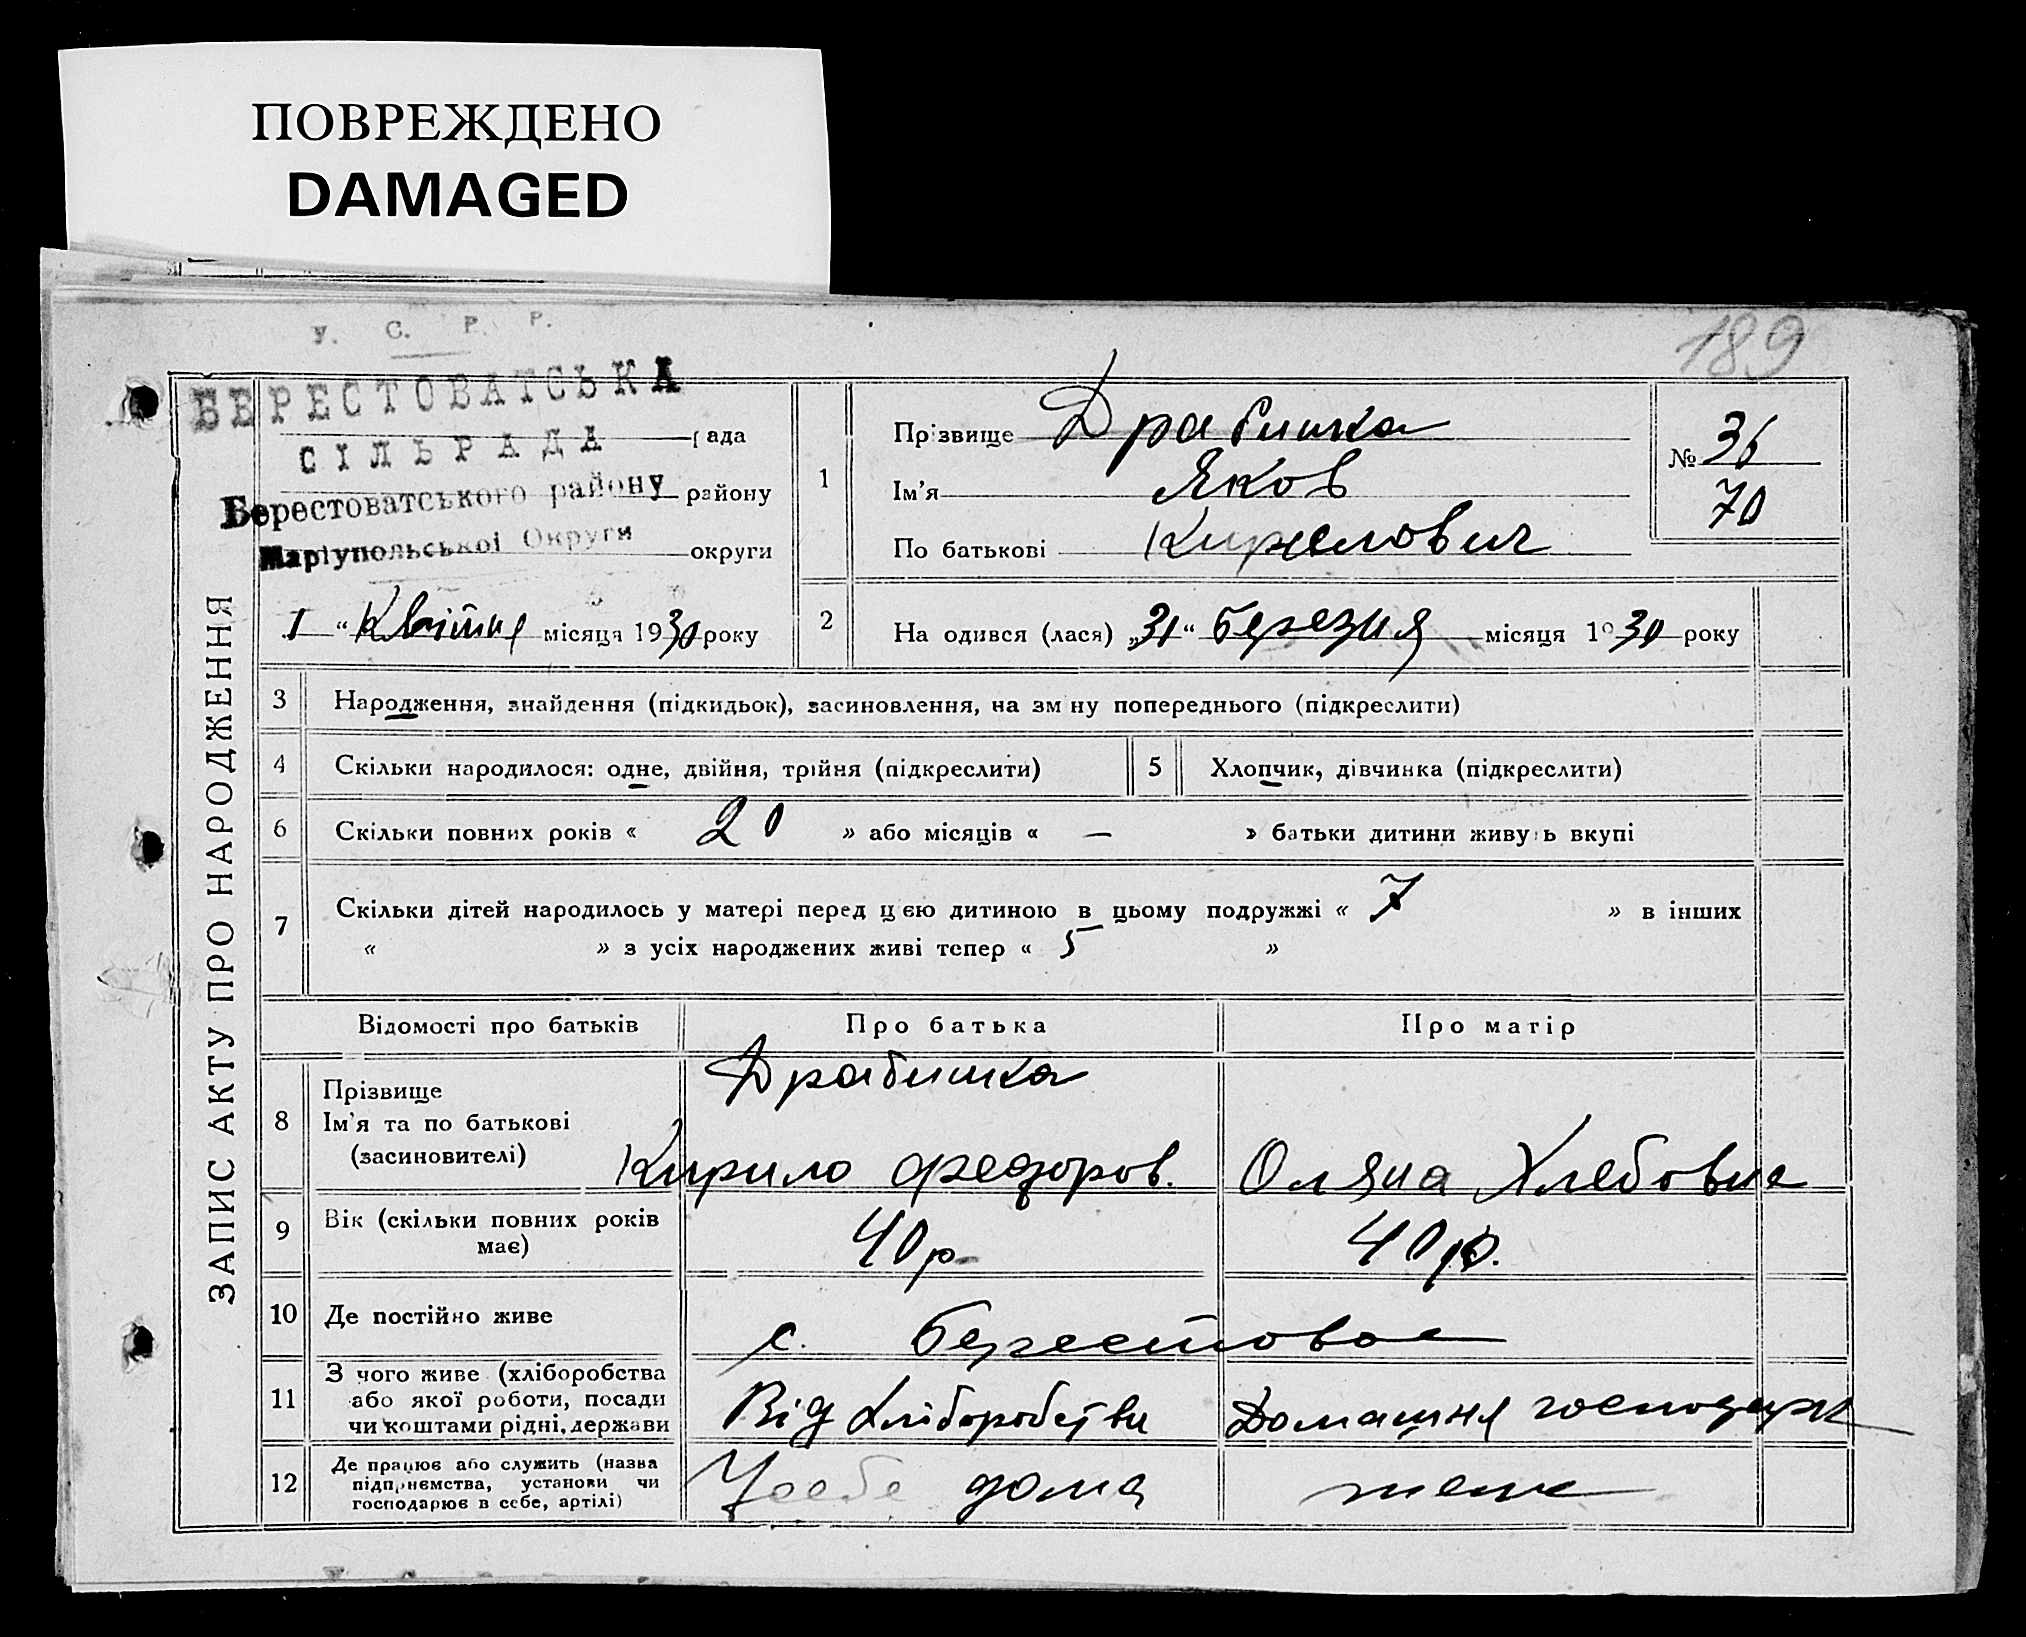 ПОВРЕЖДЕНО
DAMAGED
189
У. С. Р. Р.
БЕРЕСТОВАТСЬКА
СІЛЬРАДА рада
Берестоватського району району
Маріупольської Округи округи
1 " Квітня місяця 1930 року
ЗАПИС АКТУ ПРО НАРОДЖЕННЯ
1 Прізвище Драбишка
Ім'я Яков
По батькові Кирилович
№ 36
70
2 На одився (лася) „31“ березня місяця 1930 року
3 Народження, знайдення (підкидьок), засиновлення, на зміну попереднього (підкреслити)
4 Скільки народилося: одне, двійня, трійня (підкреслити) 5 Хлопчик, дівчинка (підкреслити)
6 Скільки повних років « 20 » або місяців « — » батьки дитини живуть вкупі
7 Скільки дітей народилось у матері перед цією дитиною в цьому подружжі « 7 » в інших
« » з усіх народжених живі тепер « 5 »
Відомості про батьків Про батька Про матір
8 Прізвище Драбишка
Ім'я та по батькові
(засиновителі) Кирило Федоров. Оляна Хлебовна
9 Вік (скільки повних років має) 40 р. 40 р.
10 Де постійно живе с. Берестове
11 З чого живе (хліборобства
або якої роботи, посади
чи коштами рідні, держави Від Хліборобства Домашня господарка
12 Де працює або служить (назва
підприємства, установи чи
господарює в себе, артілі) У себе дома теж